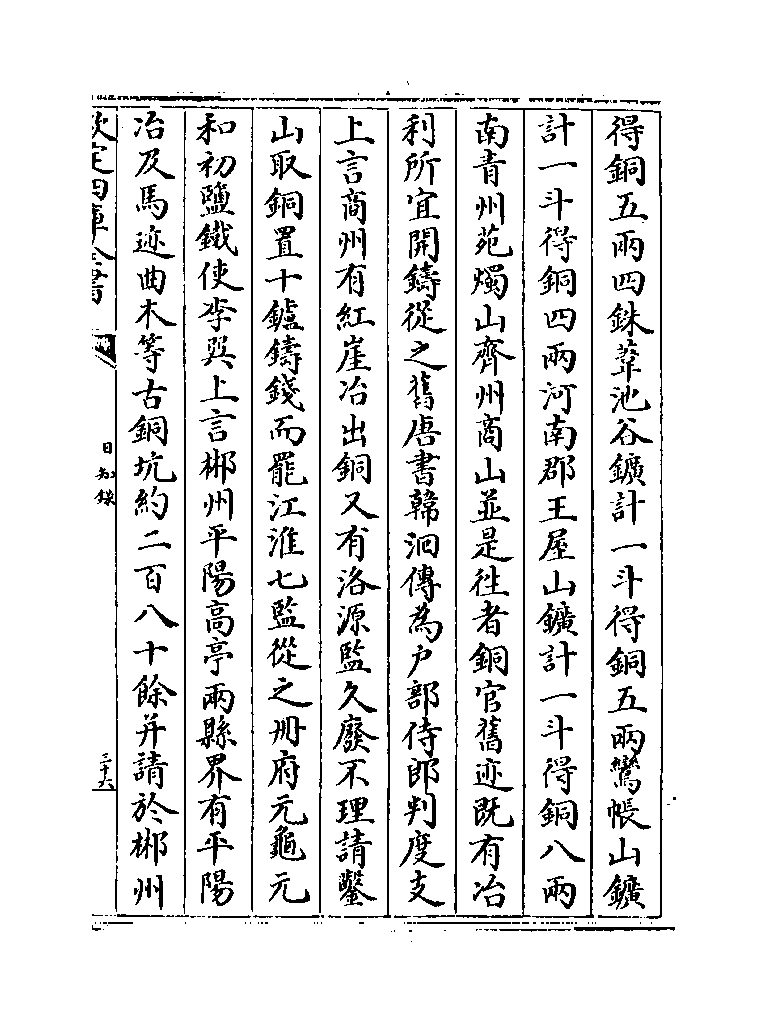 得銅五兩四銖葦池谷鑛計一斗得銅五兩鸞帳山鑛
計一斗得銅四兩河南郡王屋山鑛計一斗得銅八兩
南青州苑燭山齊州商山並是徃者銅官舊迹既有冶
利所宜開鑄從之舊唐書韓洄傳為户部侍郎判度支
上言商州有紅崖冶出銅又有洛源監久廢不理請鑿
山取銅置十鑪鑄錢而罷江淮七監從之冊府元龜元
和初鹽鐵使李巽上言郴州平陽高亭兩縣界有平陽
冶及馬迹曲木等古銅坑約二百八十餘井請於郴州
欽定四庫全書
日知錄
三十六